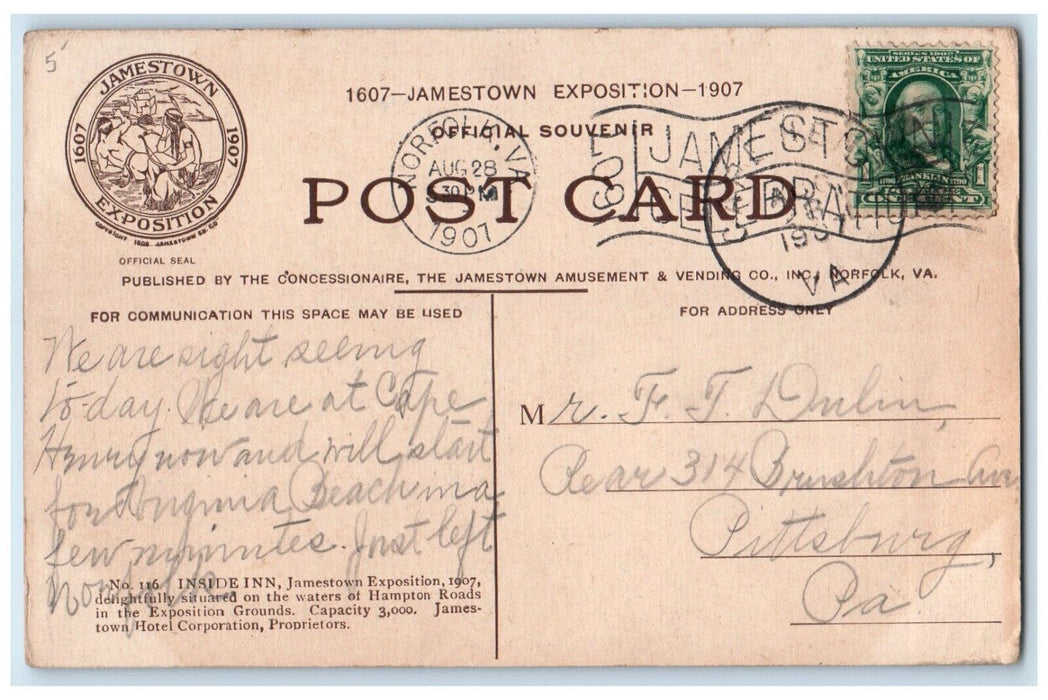 5
JAMESTOWN
1607 1907
EXPOSITION
COPYRIGHT 1906. JAMESTOWN EX. CO
OFFICIAL SEAL
1607—JAMESTOWN EXPOSITION—1907
OFFICIAL SOUVENIR
POST CARD
NORFOLK, VA.
AUG 28
30 PM
1907
1907
JAMESTOWN
VA
SERIES 1902
UNITED STATES OF
AMERICA
FRANKLIN
ONE CENT
PUBLISHED BY THE CONCESSIONAIRE, THE JAMESTOWN AMUSEMENT & VENDING CO., INC., NORFOLK, VA.
FOR COMMUNICATION THIS SPACE MAY BE USED
FOR ADDRESS ONLY
We are sight seeing
to-day. We are at Cape
Henry now and will start
for Virginia Beach in a
few minutes. Just left
Norfolk
No. 116 INSIDE INN, Jamestown Exposition, 1907,
delightfully situated on the waters of Hampton Roads
in the Exposition Grounds. Capacity 3,000. James-
town Hotel Corporation, Proprietors.
Mr. F. T. Dulin
Rear 314 Brushton Av
Pittsburg,
Pa.